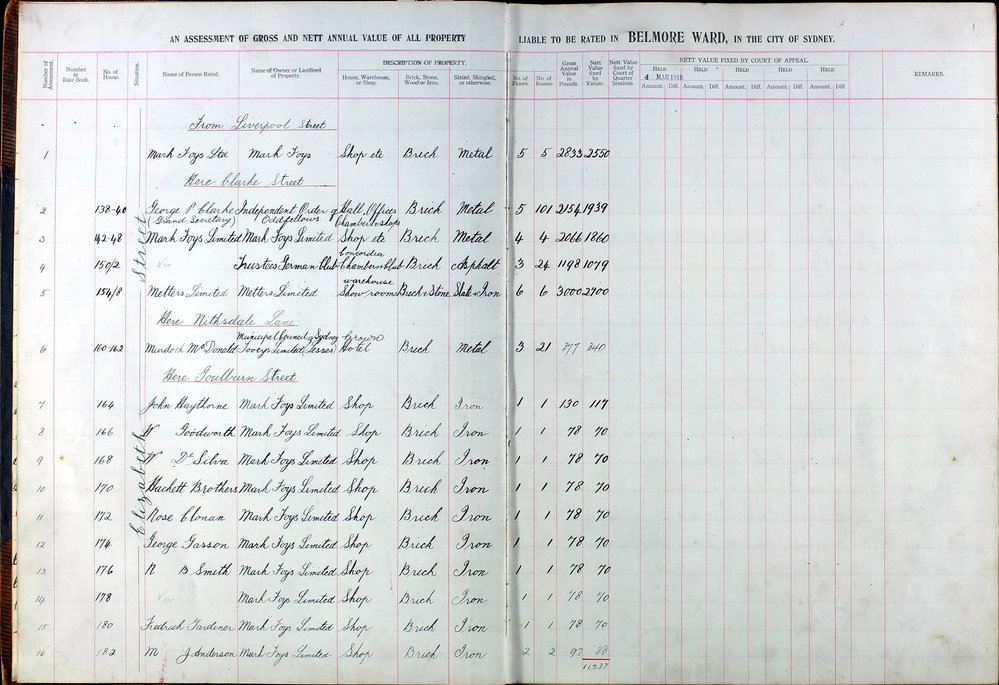 AN ASSESSMENT OF GROSS AND NETT ANNUAL VALUE OF ALL PROPERTY LIABLE TO BE RATED IN BELMORE WARD, IN THE CITY OF SYDNEY.
Number of Assessment. Number in Rate Book. No. of House. Situation. Name of Person Rated. Name of Owner or Landlord of Property. DESCRIPTION OF PROPERTY. House, Warehouse, or Shop. Brick, Stone, Wood or Iron. Slated, Shingled, or otherwise. No. of Floors. No. of Rooms. Gross Annual Value in Pounds. Nett Value fixed by Valuer. Nett Value fixed by Court of Quarter Sessions. NETT VALUE FIXED BY COURT OF APPEAL. REMARKS.
HELD HELD HELD HELD HELD
4 MAR 1918
Amount. Diff. Amount. Diff. Amount. Diff. Amount. Diff. Amount. Diff.
Elizabeth Street
From Liverpool Street
1 Mark Foys Ltd Mark Foys Shop etc Brick Metal 5 5 2833 2550
Here Clarke Street
2 138-40 George P Clarke Independent Order of Hall, Offices Brick Metal 5 101 2154 1939
(Grand Secretary) Oddfellows Chambers+shops
3 142-48 Mark Foys Limited Mark Foys Limited Shop etc Brick Metal 4 4 2066 1860
Concordia
4 150/2 Vac Trustees German Club Chambers Club Brick Asphalt 3 24 1198 1079
warehouse
5 154/8 Metters Limited Metters Limited Show rooms Brick+Stone Slate+Iron 6 6 3000 2700
Here Nithsdale Lane
Municipal Council of Sydney Crown
6 160-162 Murdock McDonald Tooeys Limited (Lesses) Hotel Brick Metal 3 21 377 340
Here Goulburn Street
7 164 John Haythorne Mark Foys Limited Shop Brick Iron 1 1 130 117
8 166 W Goodworth Mark Foys Limited Shop Brick Iron 1 1 78 70
9 168 W De Silva Mark Foys Limited Shop Brick Iron 1 1 78 70
10 170 Hackett Brothers Mark Foys Limited Shop Brick Iron 1 1 78 70
11 172 Rose Clonan Mark Foys Limited Shop Brick Iron 1 1 78 70
12 174 George Gasson Mark Foys Limited Shop Brick Iron 1 1 78 70
13 176 R B Smith Mark Foys Limited Shop Brick Iron 1 1 78 70
14 178 Vac Mark Foys Limited Shop Brick Iron 1 1 78 70
15 180 Fredrich Gardiner Mark Foys Limited Shop Brick Iron 1 1 78 70
16 182 M J Anderson Mark Foys Limited Shop Brick Iron 2 2 97 88
11233